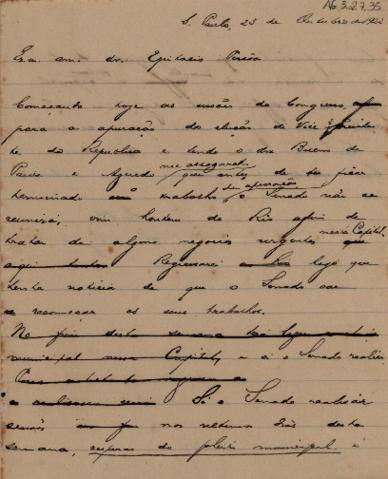 AG 3.2.7.35
S. Paulo, 23 de Outubro de 1920
Exm. am. dr. Epitacio Pessôa
Começando hoje as sessões do Congresso,
para a apuração da eleição de Vice Presiden-
te da Republica e tendo o dr. Bueno de
Paiva e Azeredo me assegurado que antes de ser
terminado trabalho da apuração o Senado não se
reuniria, vim hontem do Rio afim de
tratar de alguns negocios urgentes nesta Capital.
Regressarei logo que
tenha noticia de que o Senado vae
recomeçar os seus trabalhos.
No fim desta semana
municipal nesta Capital e si o Senado
Si o Senado realisar
sessões nos ultimos dias desta
semana, vesperas do pleito municipal